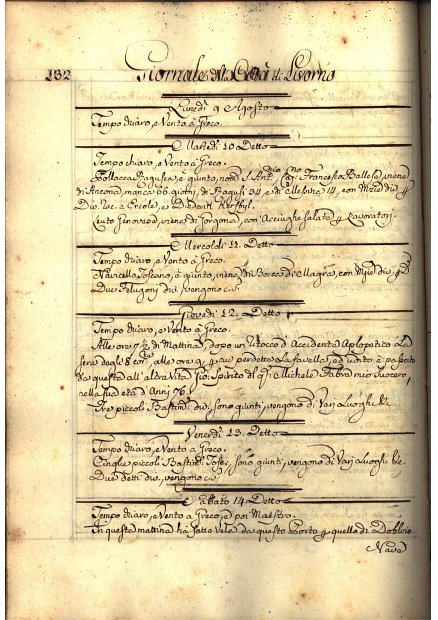 132 Giornale della Città di Livorno
Lunedì 9 Agosto
Tempo chiaro, e Vento à Greco.
Martedì 10 Detto
Tempo chiaro, e Vento à Greco.
Pollacca Ragusea, è giunto, S. Ant. Francesco viene
di Ancona, manca 66 giorni, di Ragusi 34, e di Messina 14, con
e Ercole, e
Leuto Genovese, viene di Gorgona, con Acciughe salate p Lavoratori.
Mercoldì 11. Detto
Tempo chiaro, e Vento à Greco.
Navicello Toscano, è giunto, viene di Bocca di Magra, con div: p
Due Felugoni div: vengono c.s.
Giovedì 12. Detto
Tempo chiaro, e Vento à Greco.
Alle ore 7 ½ di Mattina, dopo un tocco d'Accidente Aplopetico La
sera degli 8 alle ore 9, p cui perdette la favella, ed udito è passato
da questa all'altra Vita Gio: Spirito di Michele Fabra mio Suocero,
nella sua età d'Anni 76.
Tre piccoli Bastim: div: sono giunti, vengono di Varj Luoghi &c.
Venerdì 13. Detto
Tempo chiaro, e Vento à Greco.
Cinque piccoli Bastim: sono giunti, vengono di Varj Luoghi &c.
Due detti div:, vengono c.s.
Sabato 14 Detto
Tempo chiaro, e Vento à Greco, e poi Maestro.
In questa mattina hà fatto Vela da questo Porto p quello di
Nave